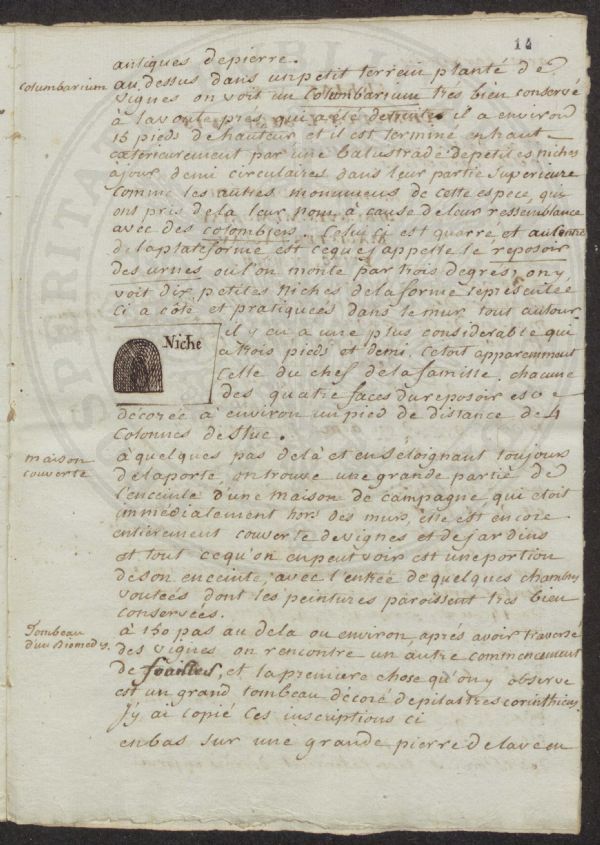 14
antiques de pierre.
columbarium
au dessus dans un petit terrein planté de
vignes on voit un Columbarium tres bien conservé
à la voute pres, qui a eté detruite. il a environ
15 pieds de hauteur et il est terminé en haut
exterieurement par une balustrade de petites niches
à jour demi circulaires dans leur partie superieure
comme les autres monumens de cette espece, qui
ont pris de la leur nom à cause de leur ressemblance
avec des colombiers. Celui ci est quarré et au centre
de la plateforme est ce que j'appelle le reposoir
des urnes où l'on monte par trois degrés; on y
voit dix petites Niches de la forme representée
ci à coté et pratiquées dans le mur tout autour
Niche
il y en a une plus considerable qui
a trois pieds et demi. C'etoit apparemment
celle du chef de la famille. chacune
des quatre faces du reposoir est
decorée à environ un pied de distance de 4
Colonnes de stuc.
maison
couverte
à quelques pas de la et en s'éloignant toujours
de la porte, on trouve une grande partie de
l'enceinte d'une maison de campagne qui étoit
immédiatement hors des murs, elle est encore
entierement couverte de vignes et de jardins
et tout ce qu'on en peut voir est une portion
de son enceinte, avec l'entrée de quelques chambres
voutées dont les peintures paroissent tres bien
conservées.
Tombeau
d'un Diomedes.
à 150 pas au dela ou environ, aprés avoir traversé
des vignes on rencontre un autre commencement
de fouilles, et la premiere chose qu'on y observe
est un grand tombeau décoré de pilastres corinthiens
J'y ai copié ces inscriptions ci
en bas sur une grande pierre de lave en